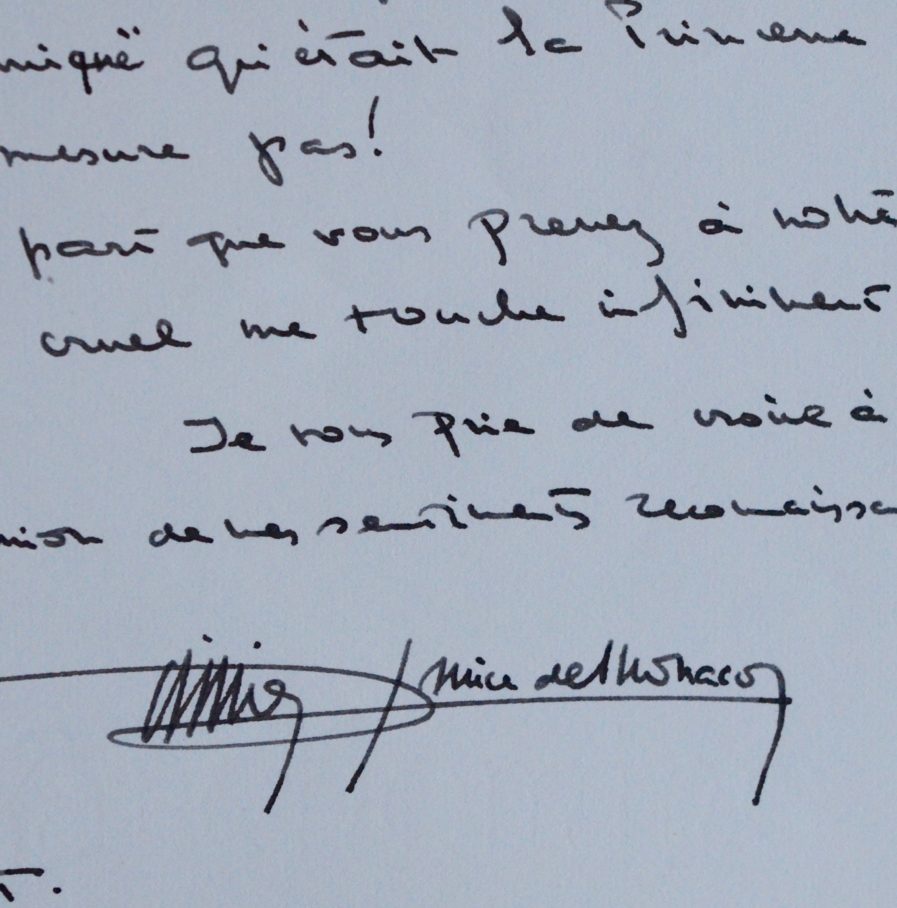 miquë qu'était la Princesse
mesure pas!
part que vous prenez à notre
cruel me touche infiniment
Je vous prie de croire à
de mes sentiments reconnaissa
Prince de Monaco
T.